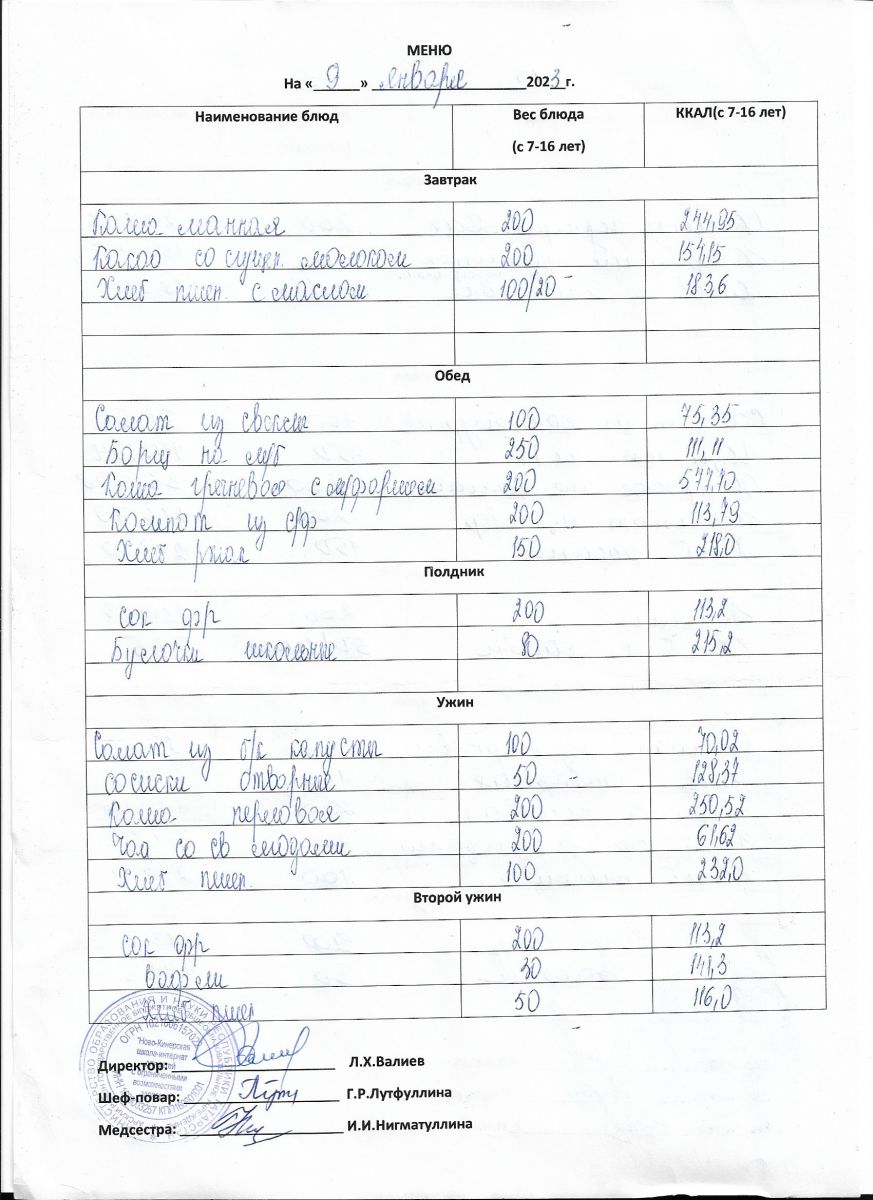 МЕНЮ
На « 9 » января 2023 г.
Наименование блюд Вес блюда (с 7-16 лет) ККАЛ(с 7-16 лет)
Завтрак
Каша манная 200 244,95
Какао со сгущ. молоком 200 154,15
Хлеб пшен. с маслом 100/20 183,6
Обед
Салат из свеклы 100 75,35
Борщ на м/б 250 111,11
Каша гречневая с м/фаршем 200 577,70
Компот из с/ф 200 113,79
Хлеб ржан 150 218,0
Полдник
сок фр 200 113,2
Булочки школьные 80 215,2
Ужин
Салат из б/к капусты 100 70,02
сосиски отварные 50 128,37
Каша перловая 200 250,52
Чай со св ягодами 200 61,62
Хлеб пшен. 100 232,0
Второй ужин
сок фр 200 113,2
вафли 30 141,3
Хлеб пшен 50 116,0
Директор: Л.Х.Валиев
Шеф-повар: Г.Р.Лутфуллина
Медсестра: И.И.Нигматуллина
"Ново-Кинерская
школа-интернат
с ограниченными
возможностями